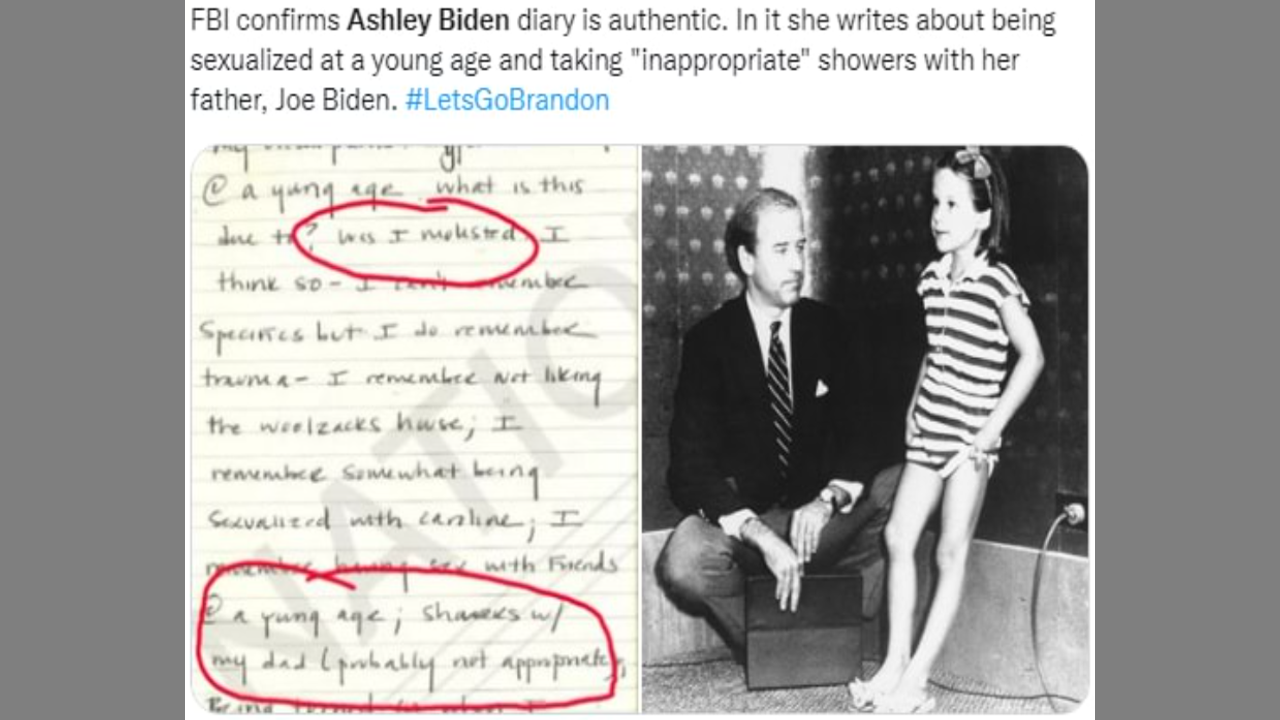 FBI confirms Ashley Biden diary is authentic. In it she writes about being
sexualized at a young age and taking "inappropriate" showers with her
father, Joe Biden. #LetsGoBrandon
@ a yung age. what is this
due to? Was I molested. I
think so - I can't remember
specifics but I do remember
trauma - I remember not liking
the woolzacks house; I
remember somewhat being
sexualized with caroline; I
remember having sex with Friends
@ a yung age; showers w/
my dad (probably not appropriate)
Being turned on when I
NATIO